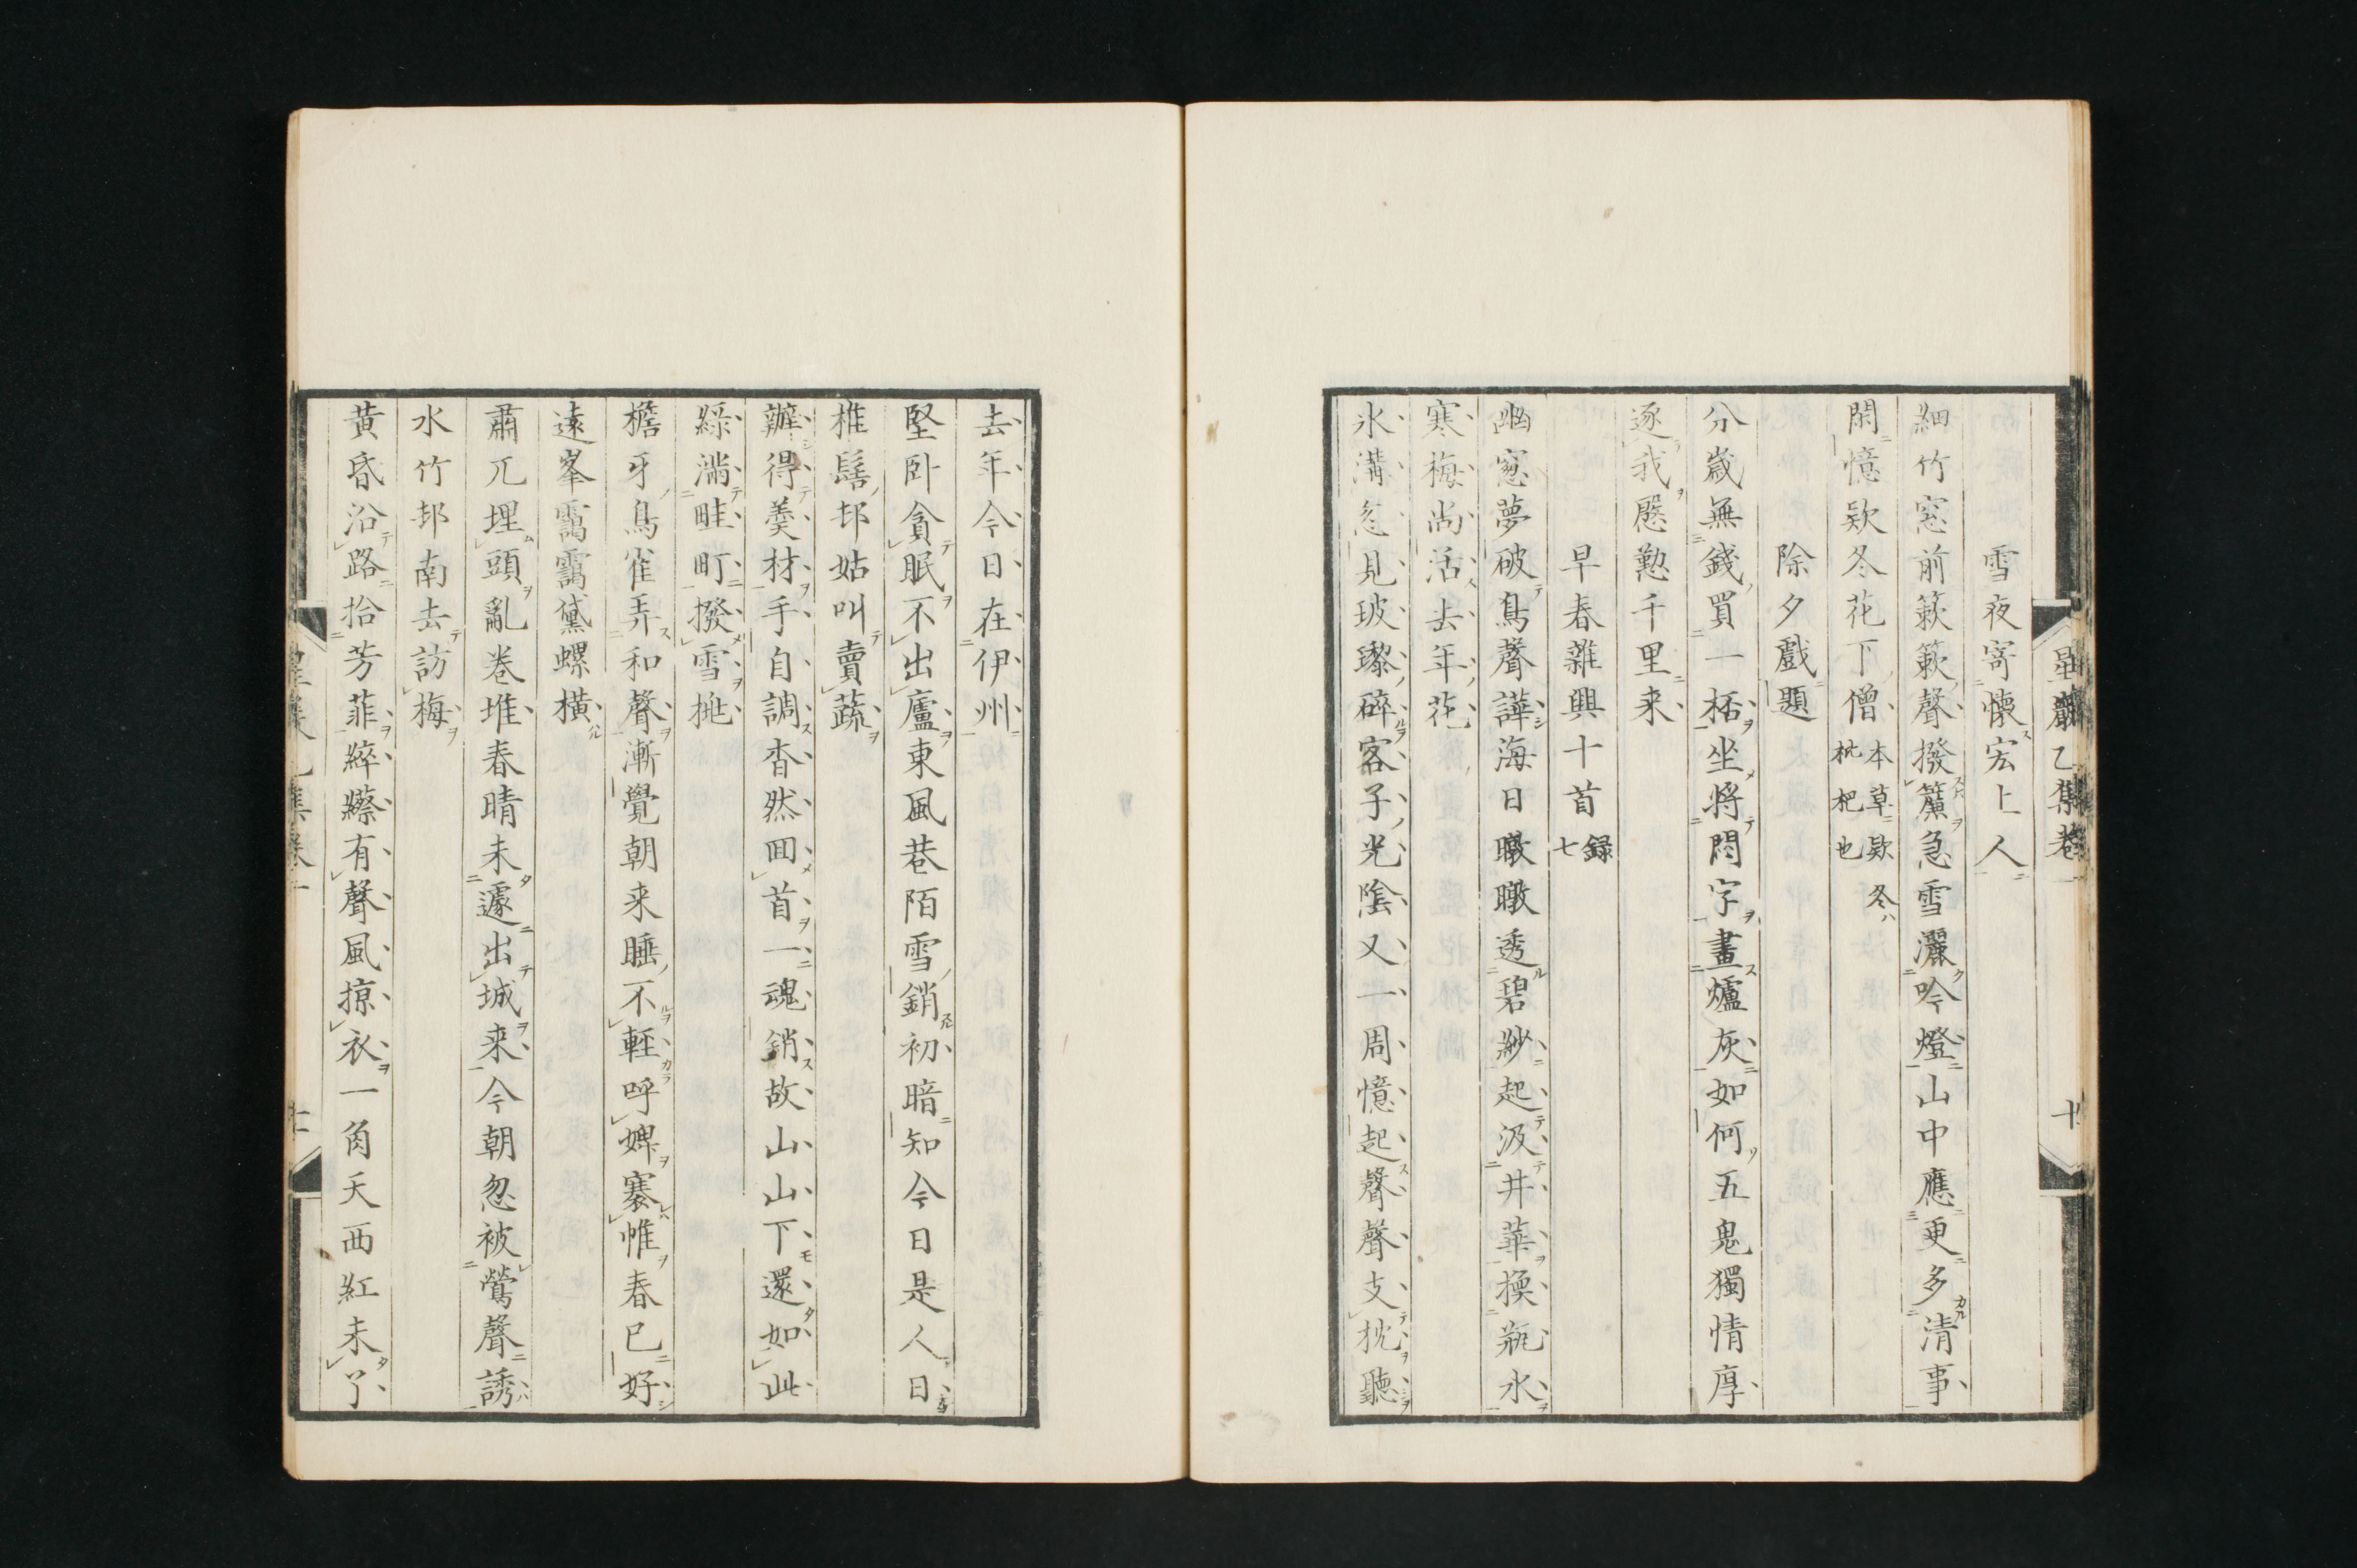 雪夜寄懷宏上人
細竹窓前簌簌聲撥簾急雪灑吟燈山中應更多清事
閑憶欵冬花下僧本草欵冬枇杷也
除夕戲題
分歳無錢買一杯坐將悶字畫爐灰如何五鬼獨情厚
逐我慇懃千里来
早春雜興十首錄七
幽窓夢破鳥聲譁海日暾暾透碧紗起汲井華換瓶水
寒梅尚活去年花
氷溝忽見玻瓈碎客子光陰又一周憶起聲聲支枕聽
去年今日在伊州
堅臥貪眠不出廬東風巷陌雪銷初暗知今日是人日
椎髻邨姑叫賣蔬
辦得羮材手自調杳然囬首一魂銷故山山下還如此
綠滿畦町撥雪挑
檐牙鳥雀弄和聲漸覺朝来睡不輕呼婢褰帷春已好
遠峯靄靄黛螺橫
肅兀埋頭亂卷堆春晴未遽出城来今朝忽被鶯聲誘
水竹邨南去訪梅
黃昏沿路拾芳菲綷縩有聲風掠衣一角天西紅未了